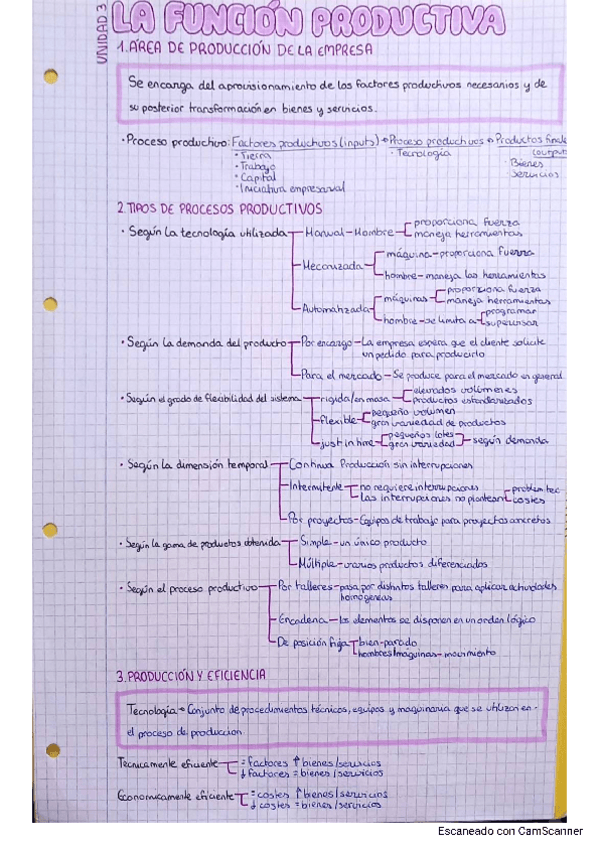 UNIDAD 3
LA FUNCIÓN PRODUCTIVA
1. ÁREA DE PRODUCCIÓN DE LA EMPRESA
Se encarga del aprovisionamiento de los factores productivos necesarios y de
su posterior transformación en bienes y servicios.
· Proceso productivo: Factores productivos (inputs) → Proceso productivos → Productos finale
· Tierra · Tecnología (output
· Trabajo · Bienes
· Capital servicios
· Iniciativa empresarial
2. TIPOS DE PROCESOS PRODUCTIVOS
· Según la tecnología utilizada Manual - Hombre proporciona fuerza
maneja herramientas
Mecanizada máquina - proporciona fuerza
hombre - maneja las herramientas
Automatizada máquinas proporciona fuerza
maneja herramientas
hombre - se limita a programar
supervisar
· Según la demanda del producto Por encargo - La empresa espera que el cliente solicite
un pedido para producirlo
Para el mercado - Se produce para el mercado en general
· Según el grado de flexibilidad del sistema rigida/en masa elevados volúmenes
productos estandarizados
flexible pequeño volumen
gran variedad de productos
just in time pequeños lotes
gran variedad según demanda
· Según la dimensión temporal Continua Producción sin interrupciones
Intermitente no requiere interrupciones
Las interrupciones no plantean problem tec
costes
Por proyectos - Equipos de trabajo para proyectos concretos
· Según la gama de productos obtenida Simple - un único producto
Múltiple - varios productos diferenciados
· Según el proceso productivo Por talleres - pasa por distintos talleres para aplicar actividades
homogéneas
En cadena - los elementos se disponen en un orden lógico
De posición fija bien - parado
hombres/máquinas - movimiento
3. PRODUCCIÓN Y EFICIENCIA
Tecnología → Conjunto de procedimientos técnicos, equipos y maquinaria que se utilizan en
el proceso de produccion
Técnicamente eficiente = factores ↑ bienes/servicios
↓ factores = bienes/servicios
Economicamente eficiente = costes ↑ bienes/servicios
↓ costes = bienes/servicios
Escaneado con CamScanner